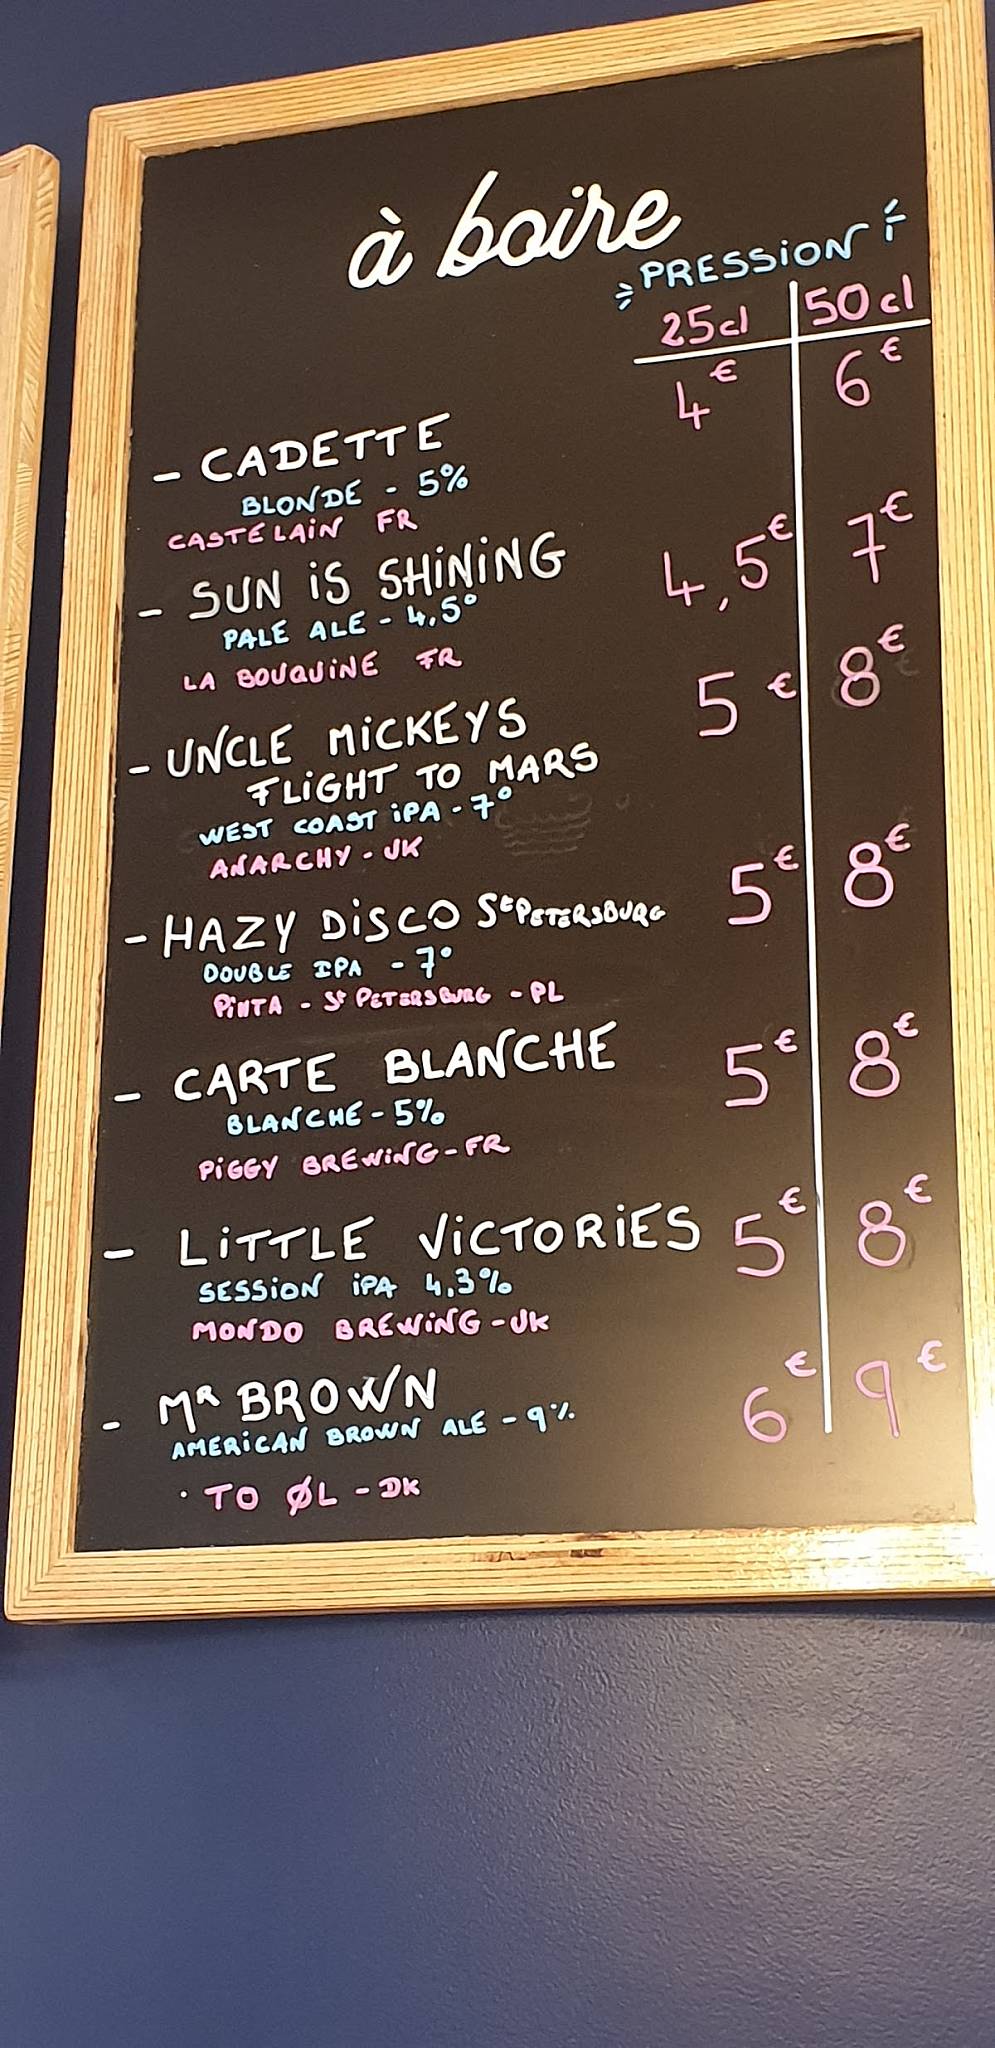 à boire
PRESSION
25cl 50cl
- CADETTE 4€ 6€
BLONDE - 5%
CASTELAIN FR
- SUN iS SHiNiNG 4,5€ 7€
PALE ALE - 4,5°
LA BOUQUiNE FR
- UNCLE MiCKEYS 5€ 8€
FLiGHT TO MARS
WEST COAST iPA - 7°
ANARCHY - UK
- HAZY DiSCO St PETERSBURG 5€ 8€
DOUBLE IPA - 7°
PiNTA - St PETERSBURG - PL
- CARTE BLANCHE 5€ 8€
BLANCHE - 5%
PiGGY BREWiNG - FR
- LiTTLE ViCTORiES 5€ 8€
SESSiON iPA 4,3%
MONDO BREWiNG - UK
- MR BROWN 6€ 9€
AMERiCAN BROWN ALE - 9%
· TO ØL - DK